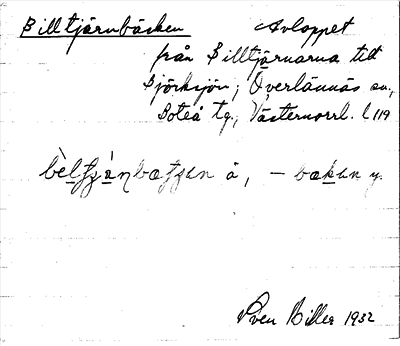 Billtjärnbäcken Avloppet
från Billtjärnarna till
Björksjön; Överlännäs sn.,
Boteå tg., Västernorrl. l 119
å, – y.
Sven Hiller 1932